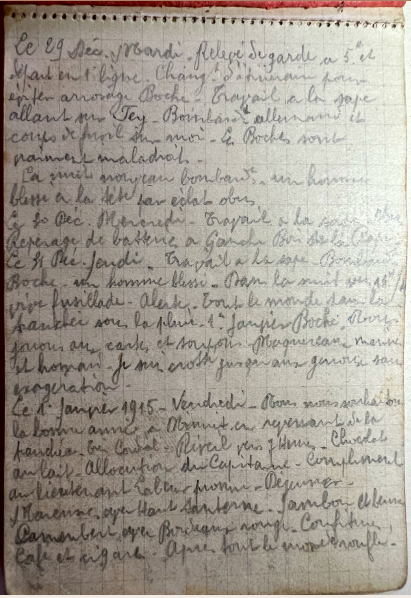 Le 29 Déc. Mardi. Relevé de garde à 5h et
départ en 1e ligne. Chang. d'
éviter arrosage Boche. Travail à la sape
allant sur Bombard. allemand et
coups de fusil sur moi. Les Boches sont
vraiment maladroits.
La nuit nouveau bombard. un homme
blessé à la tête par éclat obus.
Le 30 Déc. Mercredi. Travail à la sape
Repérage de batterie à Gauche Bois de la
Le 31 Déc. Jeudi. Travail à la sape. Bombard.
Boche. un homme blessé. Dans la nuit vers
vive fusillade. Alerte. Tout le monde dans la
tranchée sous la pluie. 1er Janvier Boche. Nous
jouons aux cartes et Maquereau mariné
et homard. Je suis crotté jusqu'aux genoux sans
exagération.
Le 1er Janvier 1915. Vendredi. Nous nous souhaitons
la bonne année à Minuit en revenant de la
Très Cordial. Réveil vers 7 Heures. Chocolat
au lait. Allocution du Capitaine. Compliment
au lieutenant promu. Déjeuner.
Marenne, avec Haut Sauterne. Jambon et
Camembert avec Bordeaux rouge. Confiture,
Café et cigare. Après tout le monde ronfle.